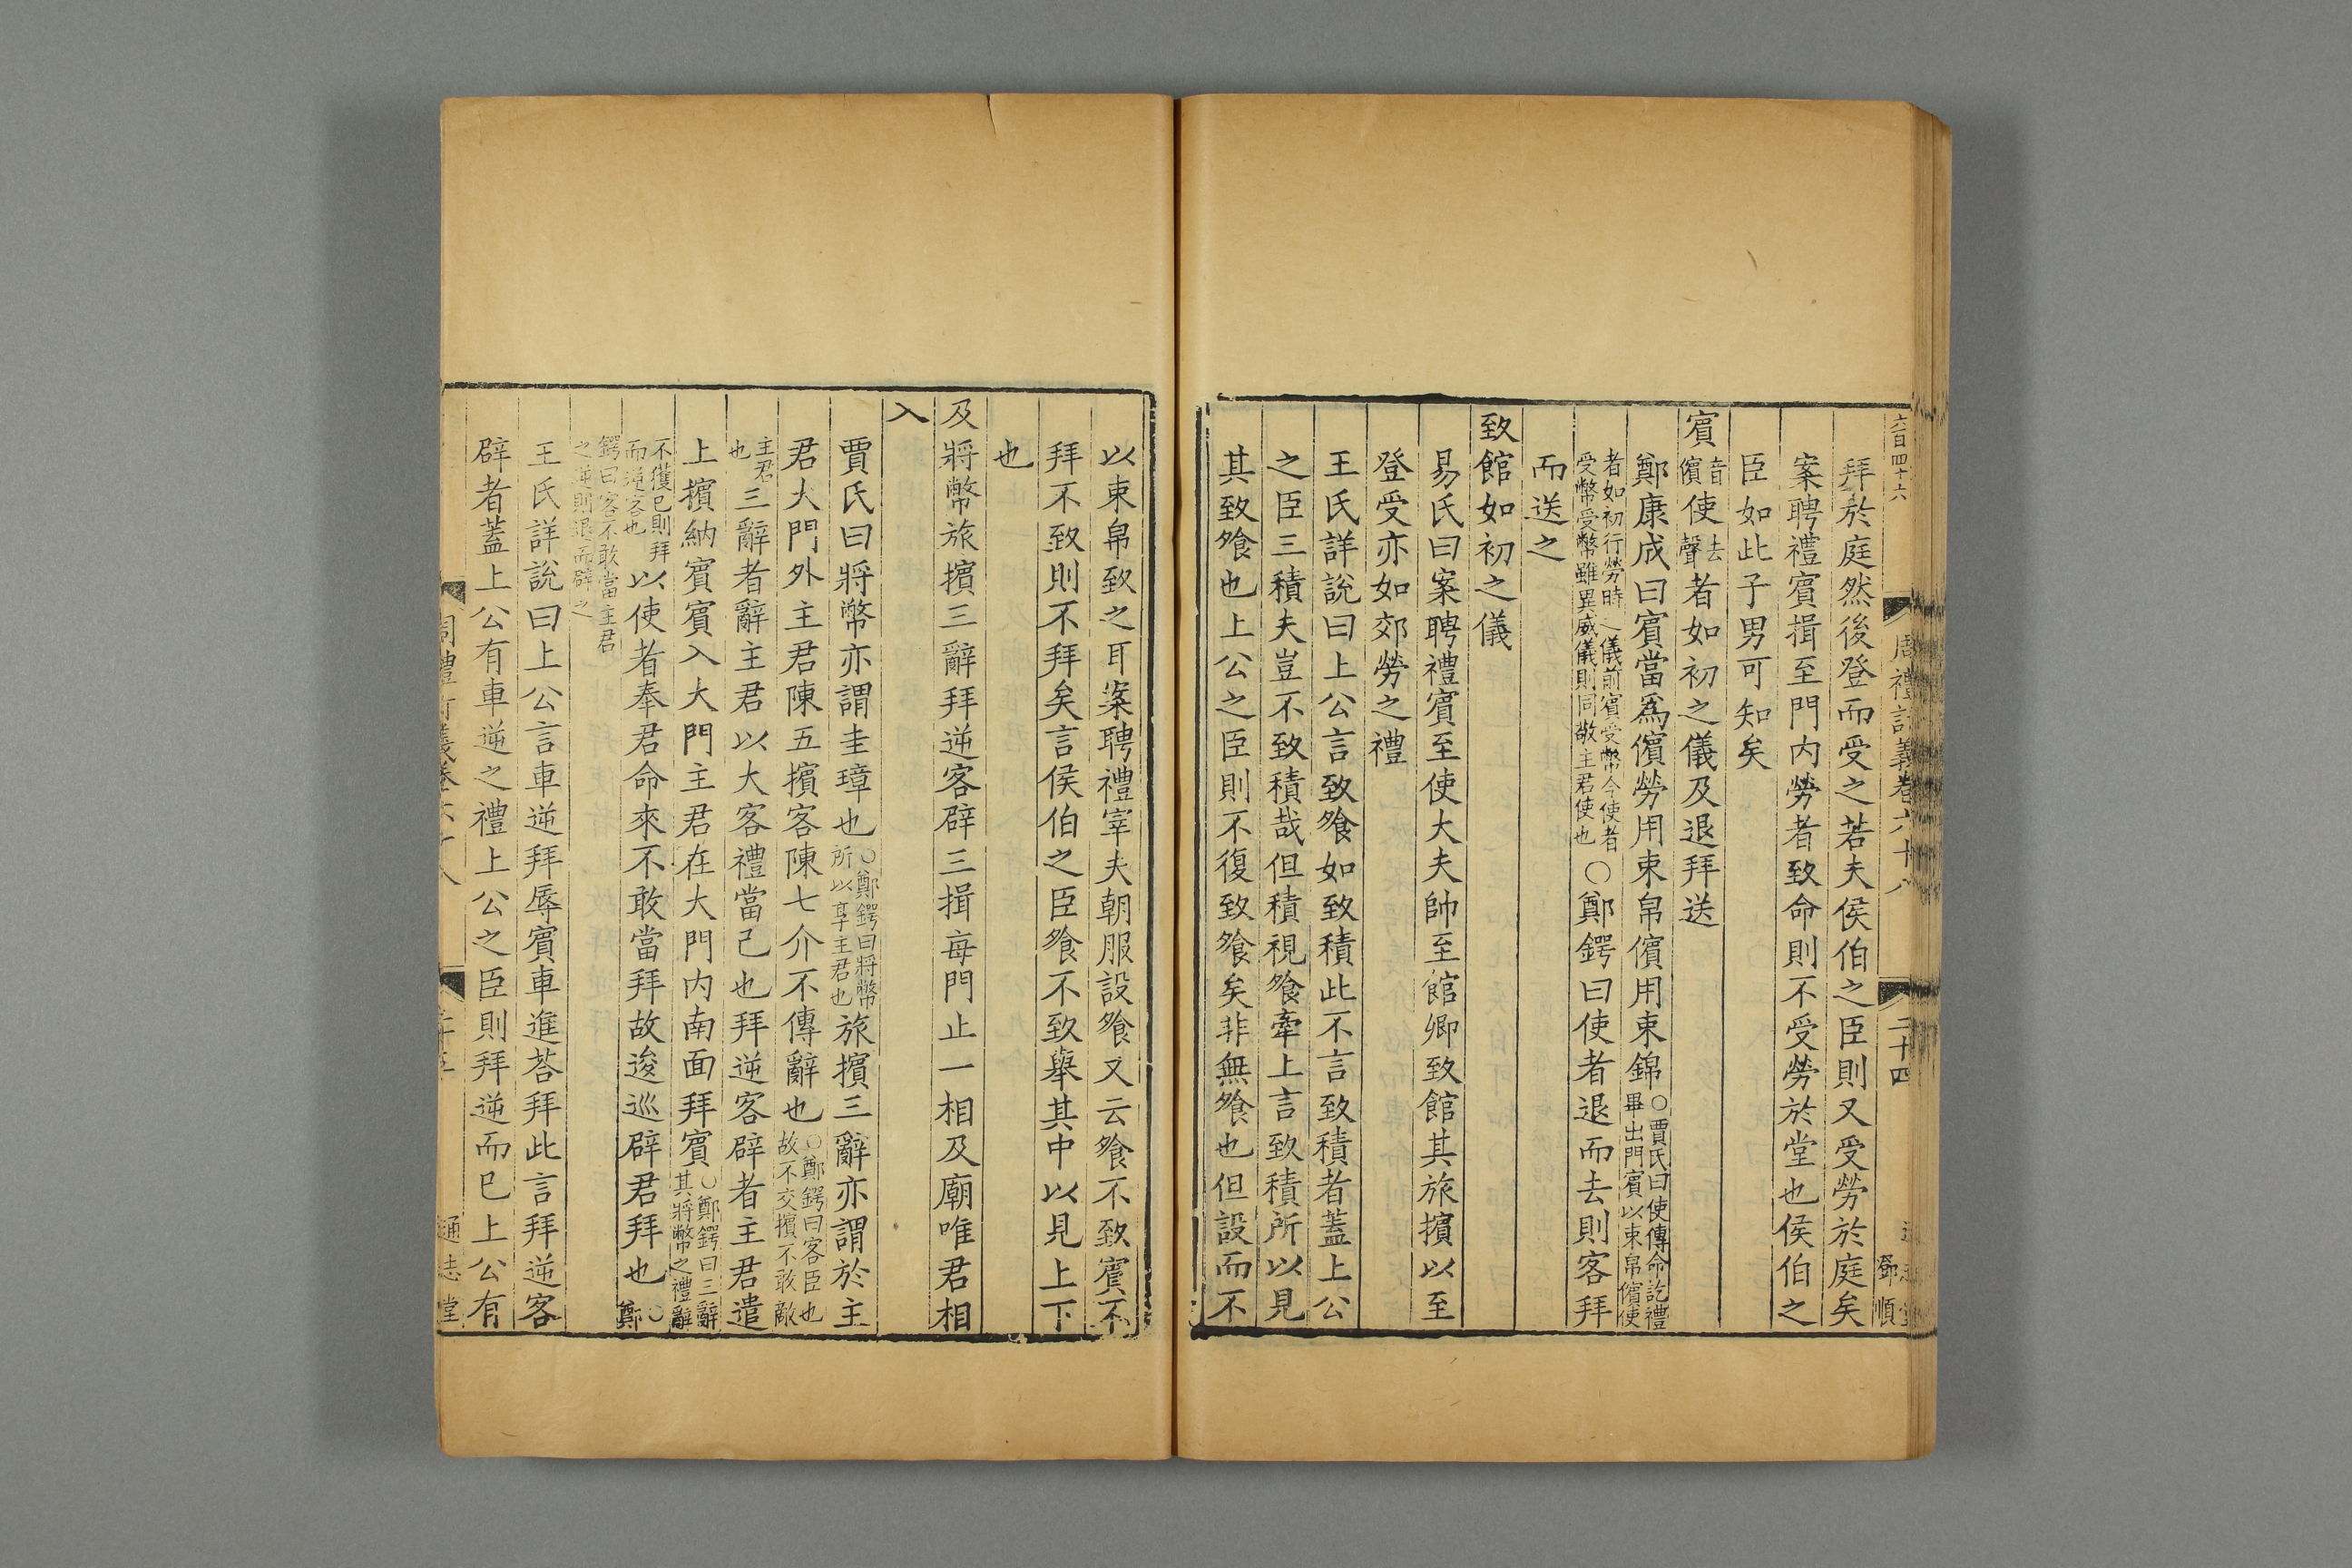 六百四十六
周禮訂義卷六十八
二十四
鄧順
拜於庭然後登而受之若夫侯伯之臣則又受勞於庭矣
案聘禮賓揖至門内勞者致命則不受勞於堂也侯伯之
臣如此子男可知矣
賓儐音使去聲者如初之儀及退拜送
鄭康成曰賓當爲儐勞用束帛儐用束錦○賈氏曰使傳命訖禮畢出門賓以束帛儐使
者如初行勞時之儀前賓受幣今使者受幣受幣雖異威儀則同敬主君使也○鄭鍔曰使者退而去則客拜
而送之
致館如初之儀
易氏曰案聘禮賓至使大夫帥至館卿致館其旅擯以至
登受亦如郊勞之禮
王氏詳說曰上公言致飧如致積此不言致積者蓋上公
之臣三積夫豈不致積哉但積視飧牽上言致積所以見
其致飧也上公之臣則不復致飧矣非無飧也但設而不
以束帛致之耳案聘禮宰夫朝服設飧又云飧不致賓不
拜不致則不拜矣言侯伯之臣飧不致舉其中以見上下
也
及將幣旅擯三辭拜逆客辟三揖每門止一相及廟唯君相
入
賈氏曰將幣亦謂圭璋也○鄭鍔曰將幣所以享主君也旅擯三辭亦謂於主
君大門外主君陳五擯客陳七介不傳辭也○鄭鍔曰客臣也故不交擯不敢敵
主君也三辭者辭主君以大客禮當己也拜逆客辟者主君遣
上擯納賓賓入大門主君在大門内南面拜賓○鄭鍔曰三辭其將幣之禮辭
不獲已則拜而逆客也以使者奉君命來不敢當拜故逡巡辟君拜也○鄭
鍔曰客不敢當主君之逆則退而辟之
王氏詳說曰上公言車逆拜辱賓車進荅拜此言拜逆客
辟者蓋上公有車逆之禮上公之臣則拜逆而已上公有
周禮訂義卷六十八
通志堂